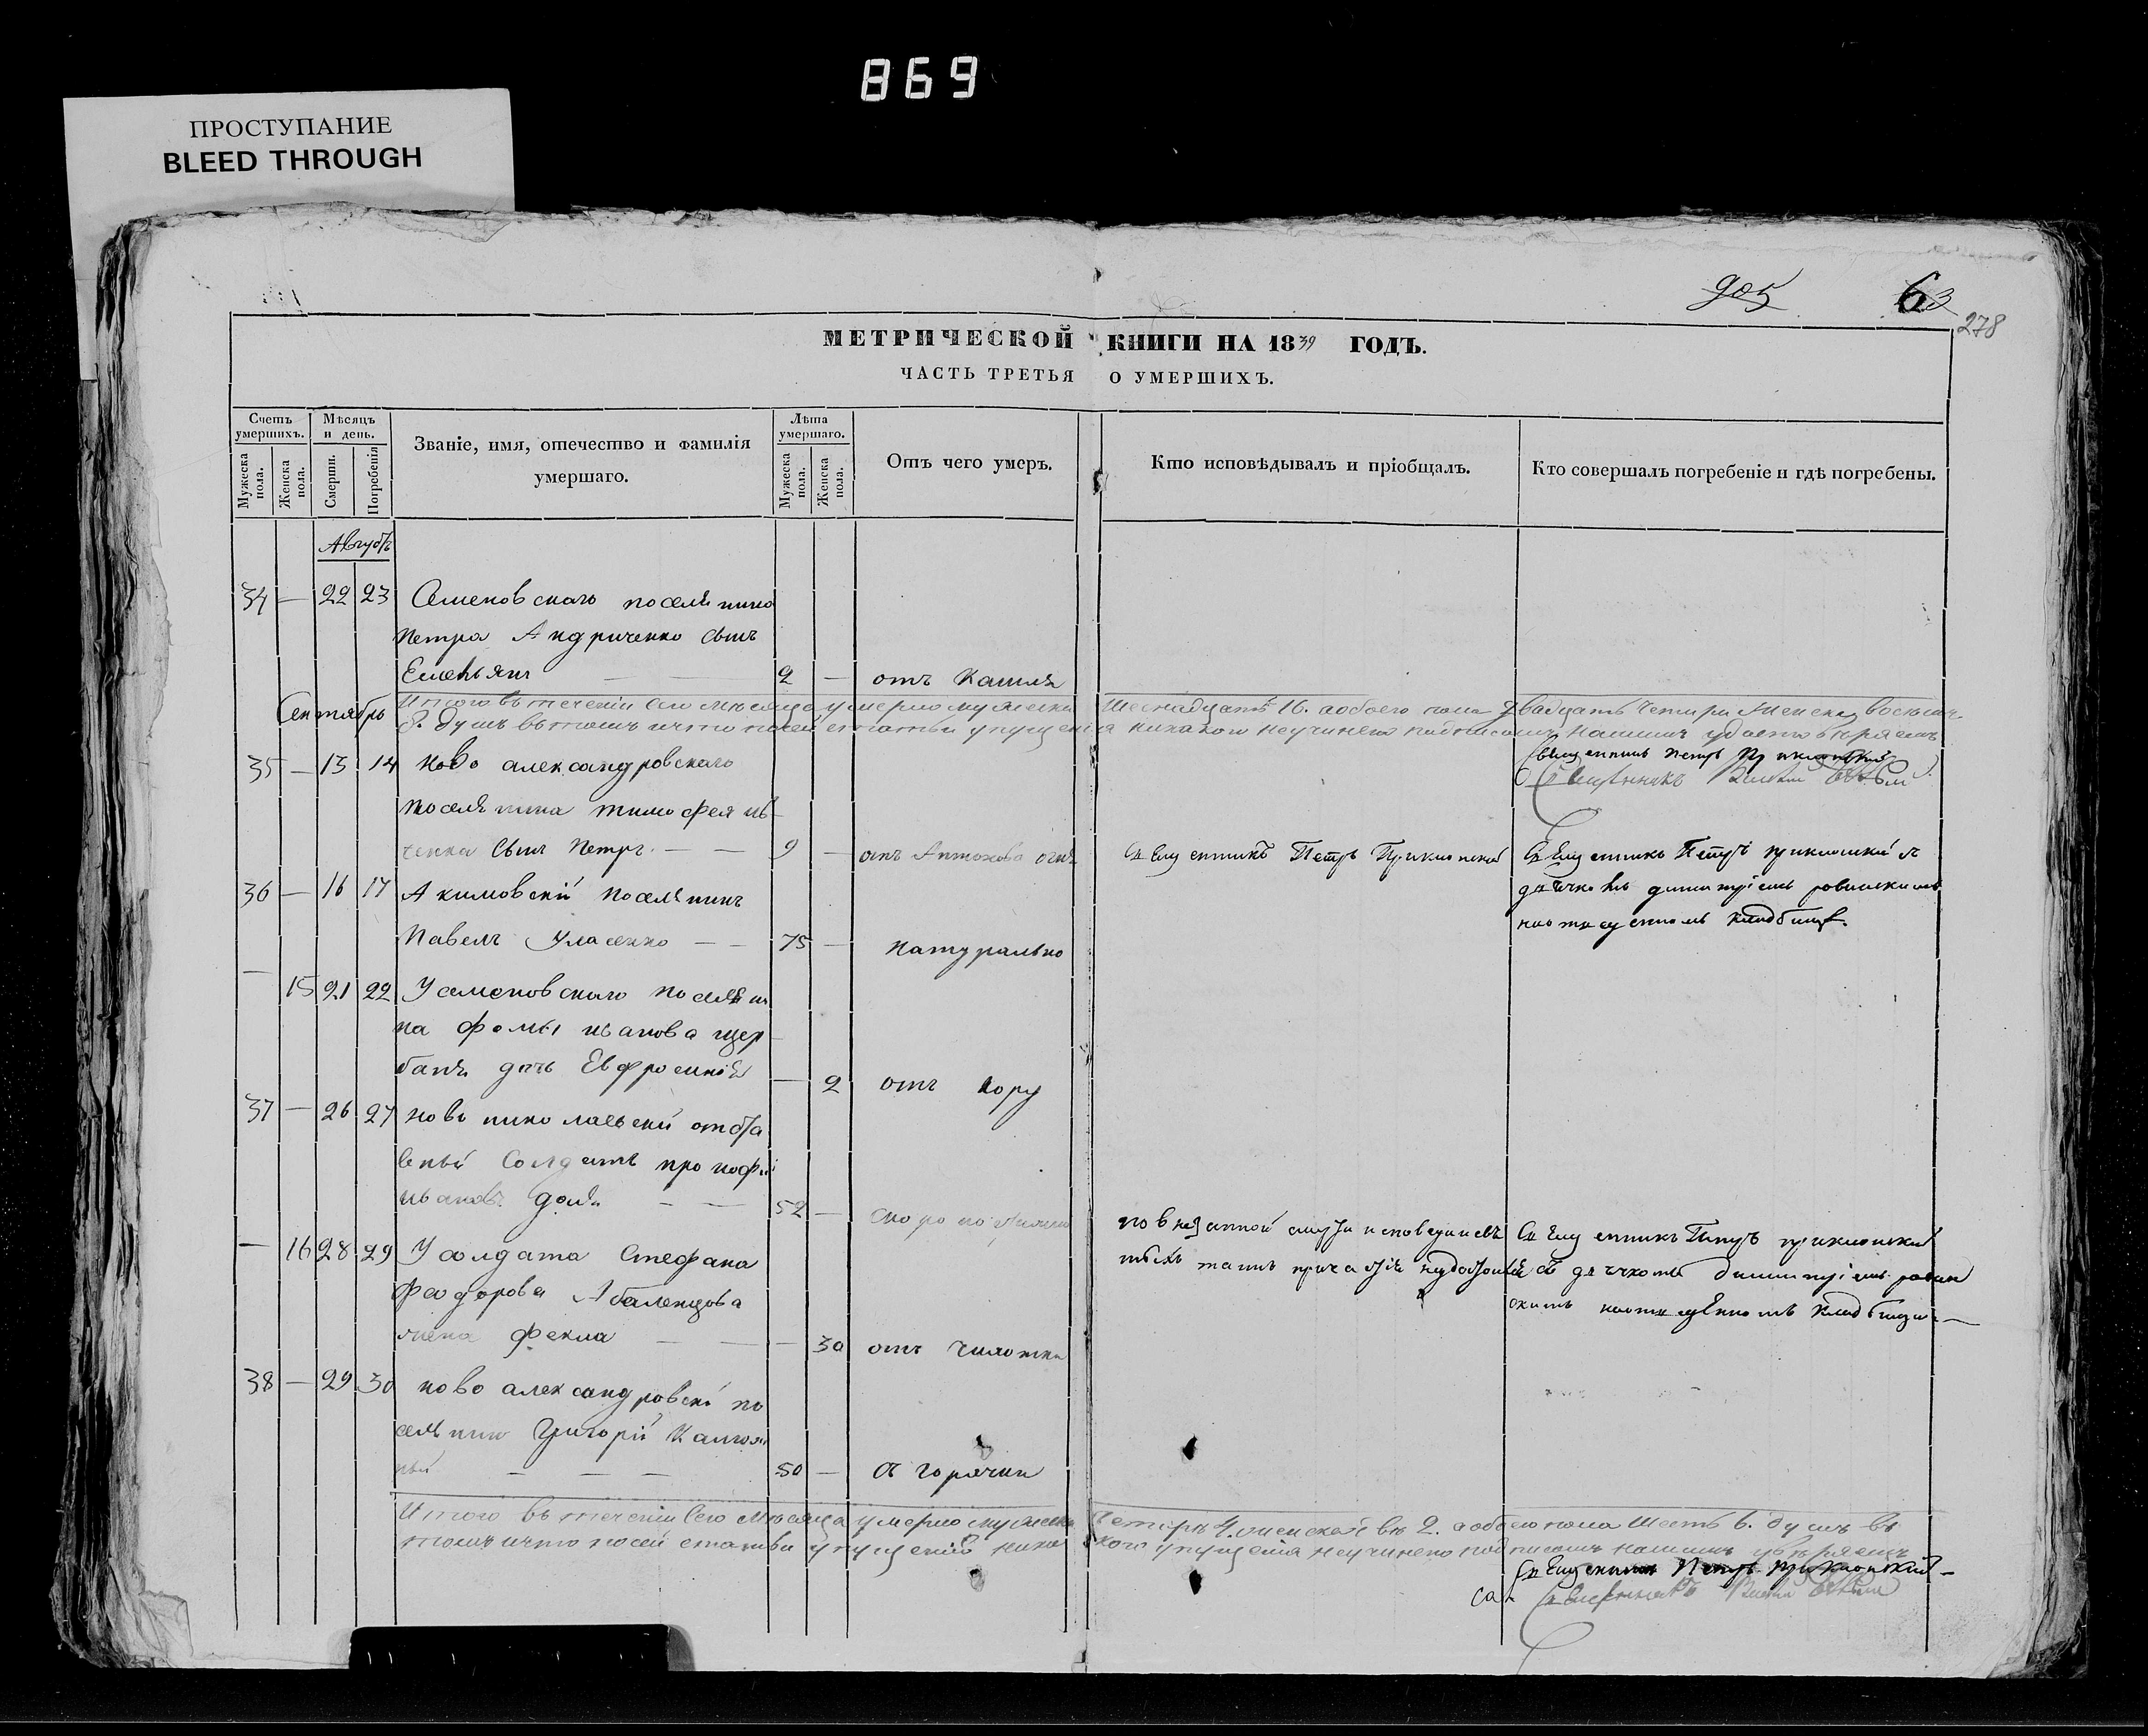 869
ПРОСТУПАНИЕ
BLEED THROUGH
905
63
278
МЕТРИЧЕСКОЙ КНИГИ НА 1839 ГОДЪ.
ЧАСТЬ ТРЕТЬЯ О УМЕРШИХЪ.
Счетъ умершихъ.
Мужеска пола.
Женска пола.
Мѣсяцъ и день.
Смерти.
Погребенія
Званіе, имя, отечество и фамилія умершаго.
Лѣта умершаго.
Мужеска пола.
Женска пола.
Отъ чего умеръ.
Кто исповѣдывалъ и пріобщалъ.
Кто совершалъ погребеніе и гдѣ погребены.
Августъ
34 — 22 23 Семеновскаго поселянина
Петра Андриченко сынъ
Емельянъ — — 2 — отъ кашля
Сентябрь
Итого въ теченіи сего мѣсяца умерло мужеска Шестнадцать 16. а обоего пола двадцать четыри женска восьмъ
8. душъ въ томъ что по сей статьи упущенія никакого неучинено подписомъ нашимъ удостовѣряемъ
Священникъ Петръ Приклонскій
Священникъ
35 — 13 14 ново александровскаго
поселянина тимофея ив
ченка сынъ Петръ — — 9 — отъ Антонова огня
Священникъ Петръ Приклонскій
Священникъ Петръ приклонскій съ
дьячкомъ димитріемъ
кладбище
36 — 16 17 Акимовскій поселянинъ
Павелъ Уласенко — — 75 — натурально
— 15 21 22 У семеновскаго поселяни
на фомы иванова щер
баня дочь Евфросинія — 2 отъ кору
37 — 26 27 ново николаевскій отста
вный солдатъ прокофій
ивановъ доля — — 52 — скоропостижно
по внезапной смерти
Священникъ Петръ приклонскій
съ дьячкомъ димитріемъ
кладбищи —
— 16 28 29 У солдата Стефана
федорова
жена фекла — — — 30 отъ чахотки
38 — 29 30 ново александровскій по
селянинъ Григорій
ный — — — 50 — съ горячки
Итого въ теченіи сего мѣсяца умерло мужеска четыри 4. женска двѣ 2. а обоего пола шесть 6. душъ въ
томъ что по сей статьи упущеній никакого упущенія неучинено подписомъ нашимъ увѣряемъ
Священникъ Петръ приклонскій —
Священникъ